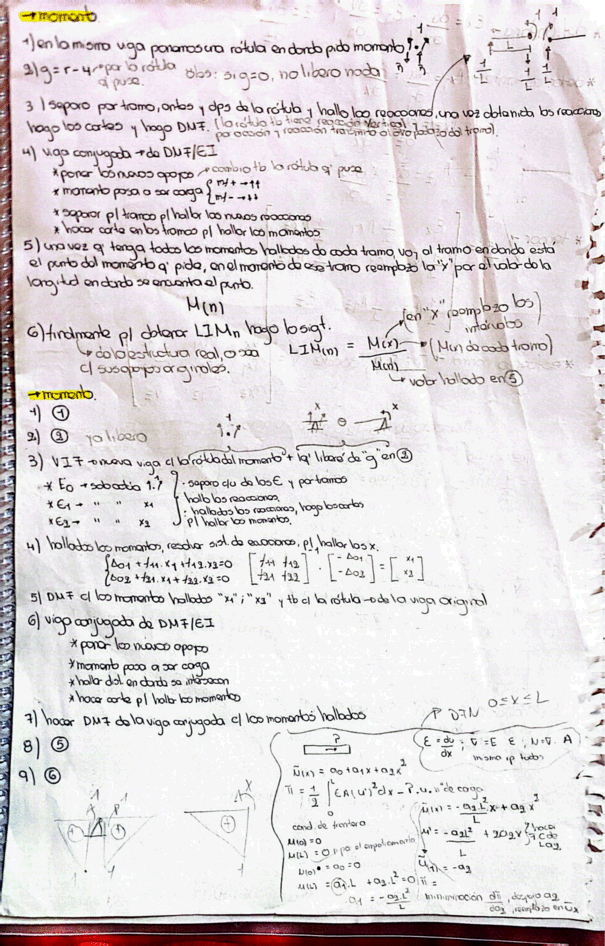 → momento.
1) en la misma viga ponemos una rótula en donde pido momento
2) g = r - 4 → por la rótula q' puse. obs: si g=0, no libero nada
3) separo por tramo, antes y dps de la rótula y hallo las reacciones, una vez obtenida las reacciones
hago los cortes y hago DMF. (la rótula tb tiene reacción vertical y
por acción y reacción transmito al otro pedazo del tramo).
4) viga conjugada → de DMF/EI
* poner los nuevos apoyos → cambio tb la rótula q' puse
* momento pasa a ser carga { m/+ → ↑↑
m/- → ↓↓
* separar p/ tramos p/ hallar las nuevas reacciones
* hacer corte en los tramos p/ hallar los momentos.
5) una vez q' tenga todos los momentos hallados de cada tramo, voy al tramo en donde está
el punto del momento q' pide, en el momento de ese tramo reemplazo la "x" por el valor de la
longitud en donde se encuentra el punto.
M(n)
6) finalmente p/ obtener LIMn hago lo sigt.
de la estructura real, o sea
c/ sus apoyos originales.
LIM(n) = M(x) / M(n)
en "x" reemplazo los intervalos
(M(x) de cada tramo)
valor hallado en ⑤
→ momento.
1) ①
2) ② ya libero
3) VIF → nueva viga c/ la rótula del momento + lo q' liberé de "g" en ②
* E0 → sobre
* E1 → " " x1
* E2 → " " x2
· separo c/u de los E y por tramos
hallo las reacciones.
: halladas las reacciones, hago los cortes
p/ hallar los momentos.
4) hallados los momentos, resolver sist. de ecuaciones, p/ hallar los x.
{ Δ01 + f11.x1 + f12.x2=0
Δ02 + f21.x1 + f22.x2=0
[ f11 f12
f21 f22 ] · [ -Δ01
-Δ02 ] = [ x1
x2 ]
5) DMF c/ los momentos hallados "x1"; "x2" y tb c/ la rótula → de la viga original
6) viga conjugada de DMF/EI
* poner los nuevos apoyos
* momento pasa a ser carga
* hallar dist. en donde se intersecan
* hacer corte p/ hallar los momentos
7) hacer DMF de la viga conjugada c/ los momentos hallados
8) ⑤
9) ⑥
P DFN 0≤x≤L
ε = du/dx ; σ = E ε ; N = σ. A
misma p/ todos
ũ(x) = a0 + a1x + a2x²
π = 1/2 ∫ EA(u')² dx - P.u
cond. de frontera
u(0)=0
u(L) = 0 → por el empotramiento
u(0) = a0 = 0
u(L) = a1.L + a2.L² = 0
a1 = -a2.L²/L
ũ(x) = -a2.L²/L x + a2x²
u' = -a2L²/L + 2a2x
minimización dπ/da2, despejo a2, reemplazo en ũx